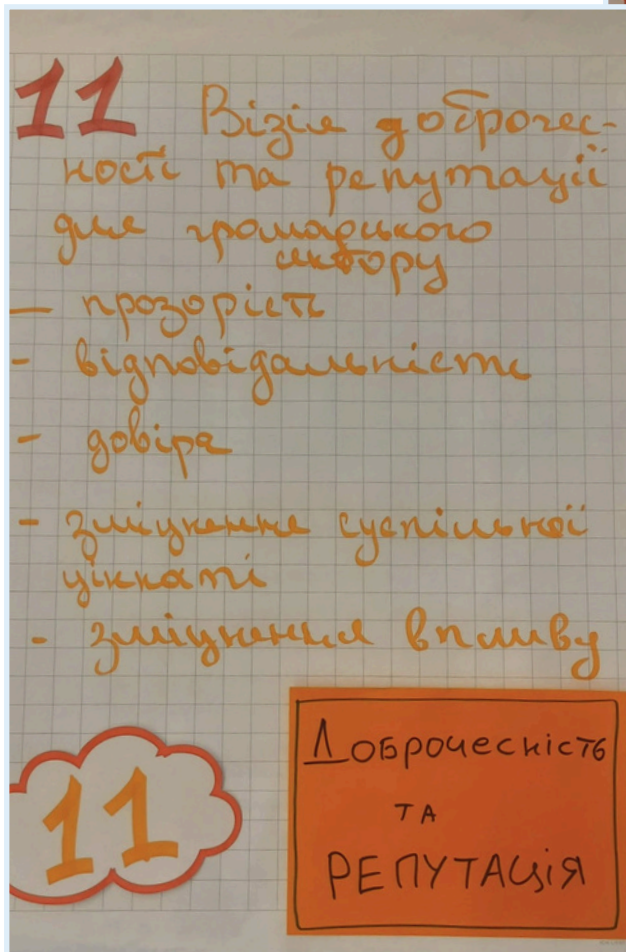 11 Візія доброчес-
ності та репутації
для громадського
сектору
— прозорість
- відповідальність
- довіра
- зміцнення суспільної
цінності
- зміцнення впливу
11
Доброчесність
ТА
РЕПУТАЦІЯ